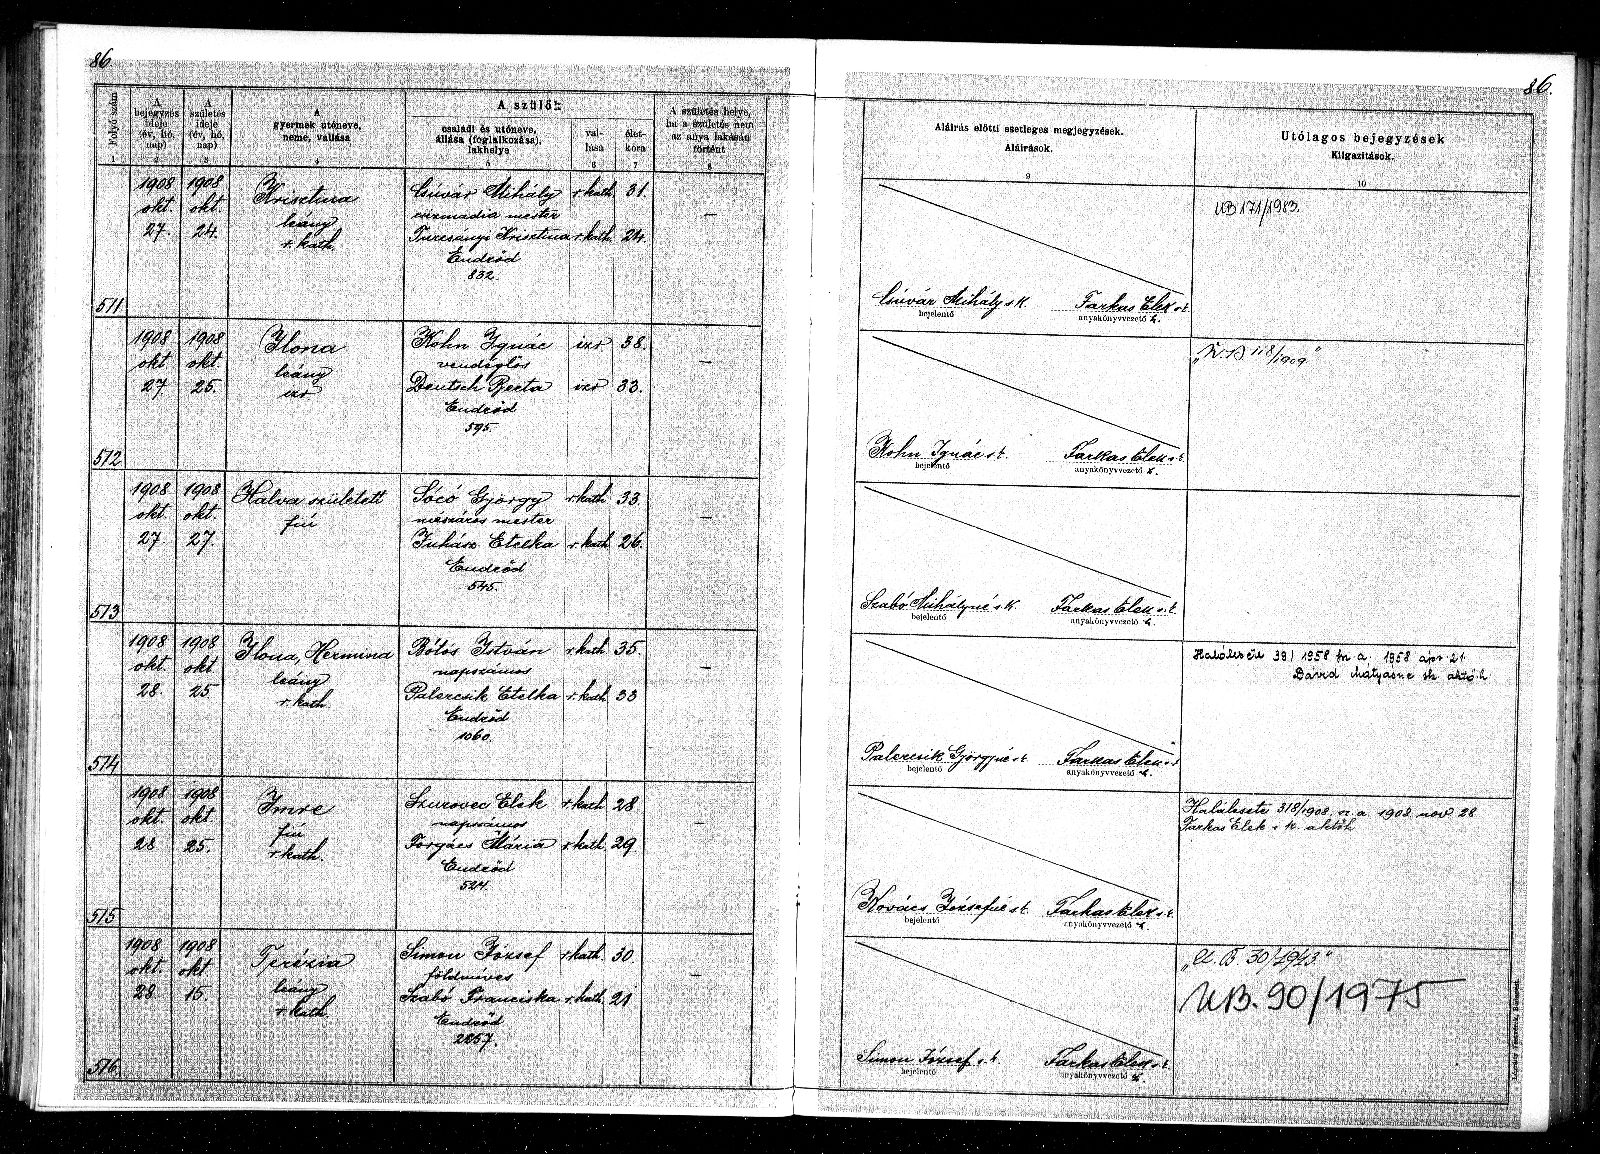 86
86.
Folyó szám
A bejegyzés ideje (év, hó, nap)
A születés ideje (év, hó, nap)
A gyermek utóneve, neme, vallása
A szülők
családi és utóneve, állása (foglalkozása), lakhelye
vallása
életkora
A születés helye, ha a születés nem az anya lakásán történt
Aláírás előtti esetleges megjegyzések.
Aláírások.
Utólagos bejegyzések
Kiigazítások.
1 2 3 4 5 6 7 8 9 10
511
1908 okt. 27.
1908 okt. 24.
Krisztina
leány
r. kath.
Csúvár Mihály r. kath. 31.
csizmadia mester
Turcsányi Krisztina r. kath. 24.
Endrőd
832.
—
Csúvár Mihály s. k.
bejelentő
Farkas Elek s. k.
anyakönyvvezető h.
UB 171/1983.
512
1908 okt 27
1908 okt. 25.
Ilona
leány
izr
Kohn Ignác izr. 38.
vendéglős
Deutsch Berta izr 33.
Endrőd
595.
—
Kohn Ignác s. k.
bejelentő
Farkas Elek s. k.
anyakönyvvezető h.
118/1909"
513
1908 okt. 27
1908 okt. 27.
Halva született
fiú
Sócó György r. kath 33.
mészáros mester
Juhász Etelka r. kath 26.
Endrőd
545.
—
Szabó Mihályné s. k.
bejelentő
Farkas Elek s. k.
anyakönyvvezető h.
514
1908 okt. 28.
1908 okt 25
Ilona, Hermina
leány
r. kath.
Bólós István r. kath 35.
napszámos
Palercsik Etelka r. kath 33
Endrőd
1060.
—
Palercsik Györgyné s. k.
bejelentő
Farkas Elek s. k.
anyakönyvvezető h.
39/1958 fn. a. 1958 ápr. 21.
Dávid Mátyásné sk. aktőh
515
1908 okt. 28
1908 okt. 25.
Imre
fiú
r. kath.
Szurovec Elek r. kath. 28
napszámos
Forgács Mária r. kath. 29.
Endrőd
524.
—
Kovács Józsefné s. k.
bejelentő
Farkas Elek s. k.
anyakönyvvezető h.
Halálesete 318/1908. sz. a. 1908. nov. 28
Farkas Elek s. k. aktőh
516.
1908 okt. 28
1908 okt 15.
Terézia
leány
r. kath.
Simon József r. kath. 30.
földműves
Szabó Franciska r. kath. 21
Endrőd
2257.
—
Simon József s. k.
bejelentő
Farkas Elek s. k.
anyakönyvvezető h.
"U. B 30/1943."
UB. 90/1975